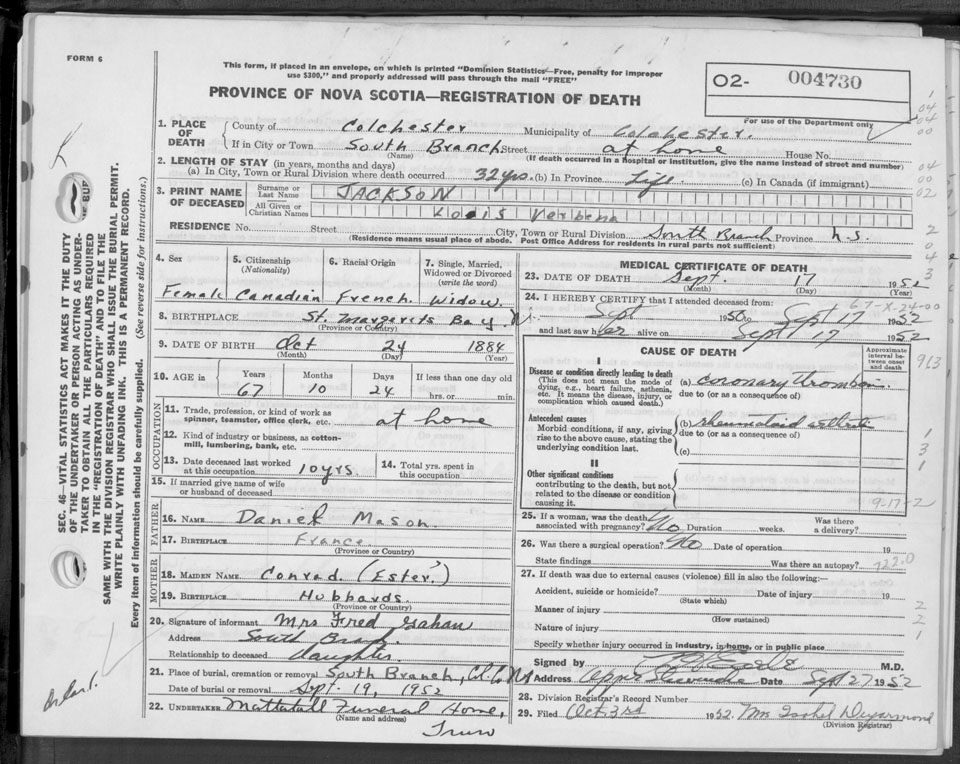 FORM 6
This form, if placed in an envelope, on which is printed "Dominion Statistics—Free, penalty for improper
use $300," and properly addressed will pass through the mail "FREE"
O2- 004730
For use of the Department only
PROVINCE OF NOVA SCOTIA—REGISTRATION OF DEATH
1. PLACE OF DEATH { County of Colchester Municipality of Colchester.
If in City or Town South Branch Street at home House No.
(Name) (If death occurred in a hospital or institution, give the name instead of street and number)
2. LENGTH OF STAY (in years, months and days)
(a) In City, Town or Rural Division where death occurred 32 yrs. (b) In Province Life. (c) In Canada (if immigrant)
3. PRINT NAME OF DECEASED { Surname or Last Name JACKSON
All Given or Christian Names Verbena
RESIDENCE No. Street City, Town or Rural Division South Branch Province N.S.
(Residence means usual place of abode. Post Office Address for residents in rural parts not sufficient)
4. Sex 5. Citizenship (Nationality) 6. Racial Origin 7. Single, Married, Widowed or Divorced (write the word)
Female Canadian French. Widow.
8. BIRTHPLACE St. Margarets Bay
(Province or Country)
9. DATE OF BIRTH Oct 24 1884
(Month) (Day) (Year)
10. AGE in Years Months Days If less than one day old
67 10 24 hrs. or min.
OCCUPATION
11. Trade, profession, or kind of work as spinner, teamster, office clerk, etc. at home
12. Kind of industry or business, as cotton-mill, lumbering, bank, etc.
13. Date deceased last worked at this occupation 10 yrs 14. Total yrs. spent in this occupation
15. If married give name of wife or husband of deceased
FATHER
16. NAME Daniel Mason.
17. BIRTHPLACE France
(Province or Country)
MOTHER
18. MAIDEN NAME Conrad. (Ester.)
19. BIRTHPLACE Hubbards.
(Province or Country)
20. Signature of informant Mrs Fred Gahan
Address South Branch.
Relationship to deceased daughter
21. Place of burial, cremation or removal South Branch, Col. Co. NS
Date of burial or removal Sept. 19, 1952
22. UNDERTAKER Mattatall Funeral Home,
(Name and address)
Truro
MEDICAL CERTIFICATE OF DEATH
23. DATE OF DEATH Sept. 17 1952
(Month) (Day) (Year)
24. I HEREBY CERTIFY that I attended deceased from: 67-X-24-00
Sept 1950 to Sept 17 1952
and last saw her alive on Sept 17 1952
CAUSE OF DEATH
Approximate interval between onset and death
913
I
Disease or condition directly leading to death
(This does not mean the mode of dying, e.g., heart failure, asthenia, etc. It means the disease, injury, or complication which caused death.)
(a) coronary thrombosis.
due to (or as a consequence of)
Antecedent causes
Morbid conditions, if any, giving rise to the above cause, stating the underlying condition last.
(b) rheumatoid arthritis
due to (or as a consequence of)
(c)
II
Other significant conditions
contributing to the death, but not related to the disease or condition causing it.
9-17-2
25. If a woman, was the death associated with pregnancy? No Duration weeks. Was there a delivery?
26. Was there a surgical operation? No Date of operation 19
State findings Was there an autopsy? 722.0
27. If death was due to external causes (violence) fill in also the following:—
Accident, suicide or homicide? Date of injury 19
(State which)
Manner of injury
(How sustained)
Nature of injury
Specify whether injury occurred in industry, in home, or in public place
Signed by M.D.
Address Upper Stewiacke Date Sept 27 1952
28. Division Registrar's Record Number
29. Filed Oct 3rd 1952. Mrs Isabel Deyarmond
(Division Registrar)
SEC. 46—VITAL STATISTICS ACT MAKES IT THE DUTY
OF THE UNDERTAKER OR PERSON ACTING AS UNDER-
TAKER TO OBTAIN ALL THE PARTICULARS REQUIRED
IN THE "REGISTRATION OF DEATH" AND TO FILE THE
SAME WITH THE DIVISION REGISTRAR WHO SHALL ISSUE THE BURIAL PERMIT.
WRITE PLAINLY WITH UNFADING INK. THIS IS A PERMANENT RECORD.
Every item of information should be carefully supplied. (See reverse side for instructions.)